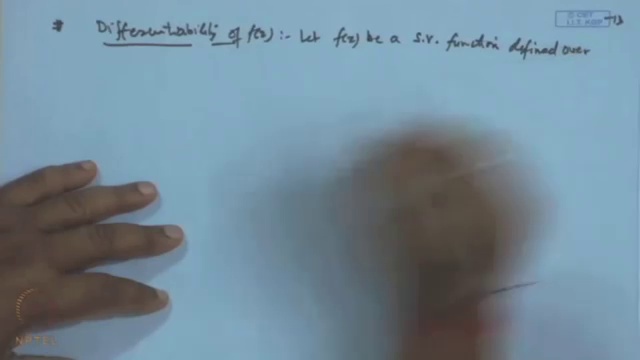 * Differentiability of f(z) :- Let f(z) be a S.V. function defined over
© CET
I.I.T. KGP
NPTEL